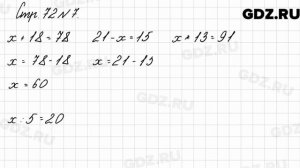 GDZ.RU
Стр. 72 № 7
x + 18 = 78 21 - x = 15 x + 13 = 91
x = 78 - 18 x = 21 - 15
x = 60
x : 5 = 20
GDZ.RU